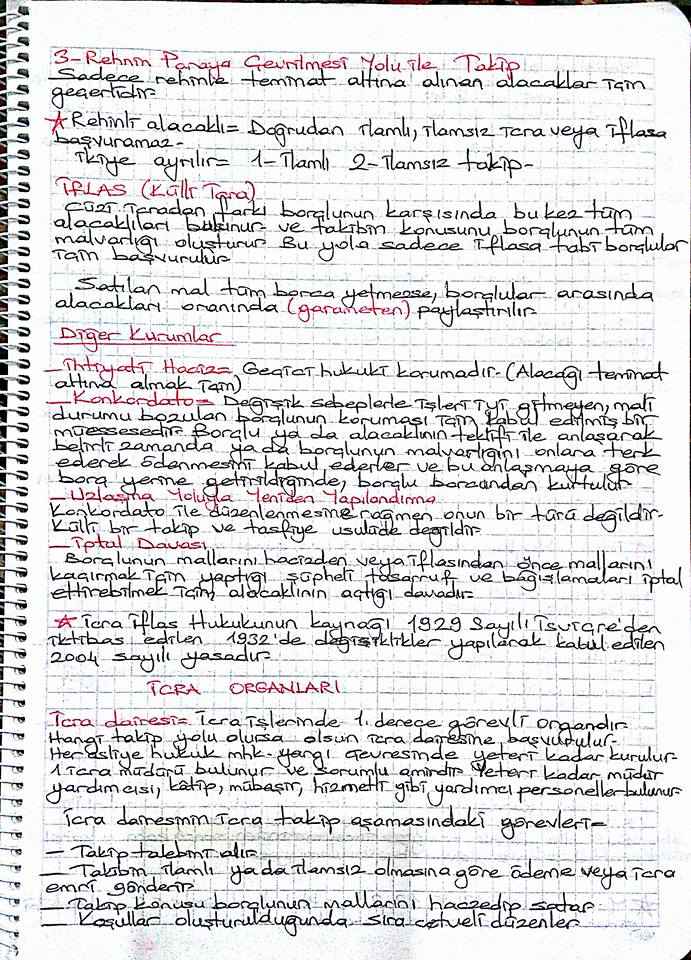 3- Rehnin Paraya Çevrilmesi Yolu ile Takip
Sadece rehinle teminat altına alınan alacaklar için
geçerlidir.
★ Rehinli alacaklı= Doğrudan ilamlı, ilamsız icra veya iflasa
başvuramaz.
İkiye ayrılır= 1-İlamlı 2-İlamsız takip-
İFLAS (Külli İcra)
Cüzi icradan farkı borçlunun karşısında bu kez tüm
alacaklıları bulunur ve takibin konusunu borçlunun tüm
malvarlığı oluşturur Bu yola sadece iflasa tabi borçlular
için başvurulur
Satılan mal tüm borca yetmezse, borçlular arasında
alacakları oranında (garameten) paylaştırılır.
Diğer Kurumlar
- İhtiyati Haciz= Geçici hukuki korumadır- (Alacağı teminat
altına almak için)
- Konkordato= Değişik sebeplerle işleri iyi gitmeyen, mali
durumu bozulan borçlunun koruması için kabul edilmiş bir
müessesedir. Borçlu ya da alacaklının teklifi ile anlaşarak
belirli zamanda ya da borçlunun malvarlığını onlara terk
ederek ödenmesini kabul ederler ve bu anlaşmaya göre
borç yerine getirildiğinde, borçlu borcundan kurtulur
- Uzlaşma Yoluyla Yeniden Yapılandırma
Konkordato ile düzenlenmesine rağmen onun bir türü değildir-
Külli bir takip ve tasfiye usulüde değildir
- İptal Davası
Borçlunun mallarını hacizden veya iflasından önce mallarını
kaçırmak için yaptığı şüpheli tasarruf ve bağışlamaları iptal
ettirebilmek için, alacaklının açtığı davadır-
★ İcra İflas Hukukunun kaynağı 1929 Sayılı İsviçre'den
iktibas edilen 1932'de değişiklikler yapılarak kabul edilen
2004 sayılı yasadır-
İCRA ORGANLARI
İcra dairesi= İcra işlerinde 1. derece görevli organdır-
Hangi takip yolu olursa olsun icra dairesine başvurulur-
Her asliye hukuk mhk- yargı çevresinde yeteri kadar kurulur-
1 icra müdürü bulunur ve sorumlu amirdir Yeteri kadar müdür
yardımcısı, kâtip, mübaşir, hizmetli gibi yardımcı personeller bulunur-
İcra dairesinin icra takip aşamasındaki görevleri=
- Takip talebini alır-
- Takibin ilamlı ya da ilamsız olmasına göre ödeme veya icra
emri gönderir
- Takip konusu borçlunun mallarını haczedip satar-
- Koşullar oluşturulduğunda sıra cetveli düzenler